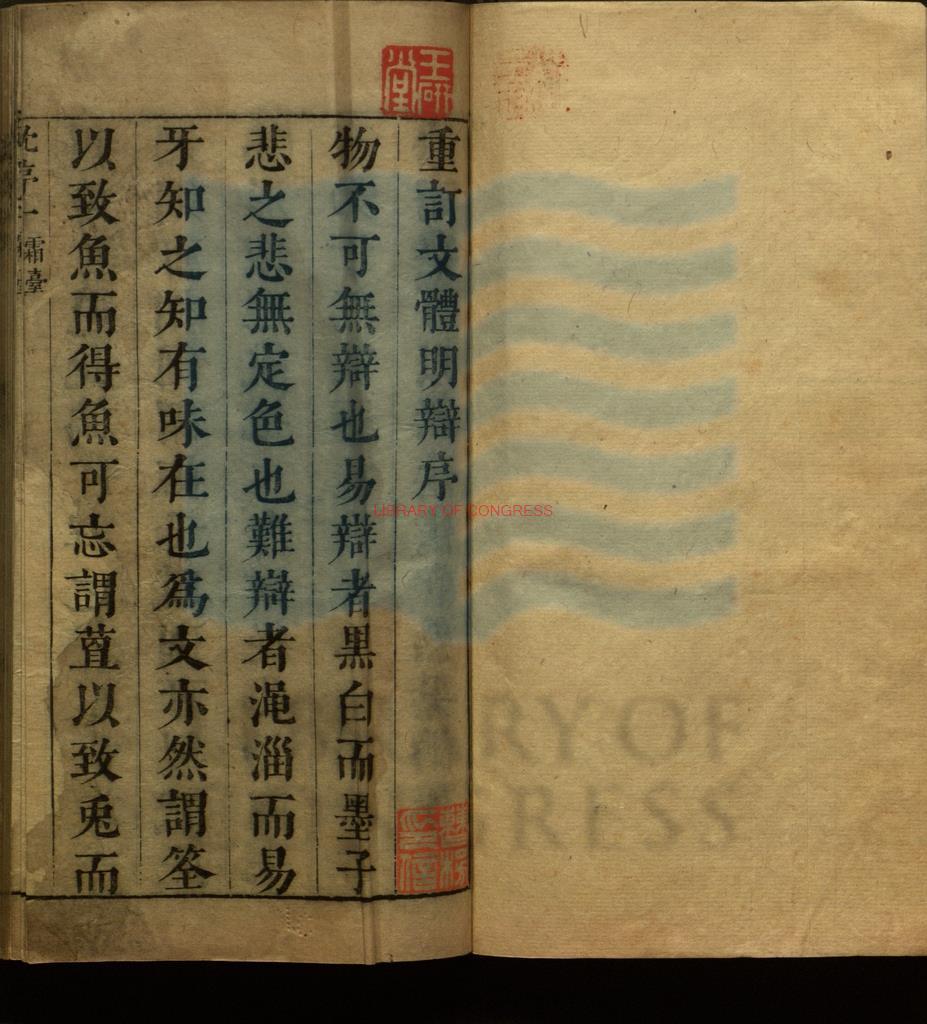 重訂文體明辯序
物不可無辯也易辯者黒白而墨子
悲之悲無定色也難辯者澠淄而易
牙知之知有味在也爲文亦然謂筌
以致魚而得魚可忘謂罝以致兎而
霜臺
LIBRARY OF CONGRESS
RY OF
RESS